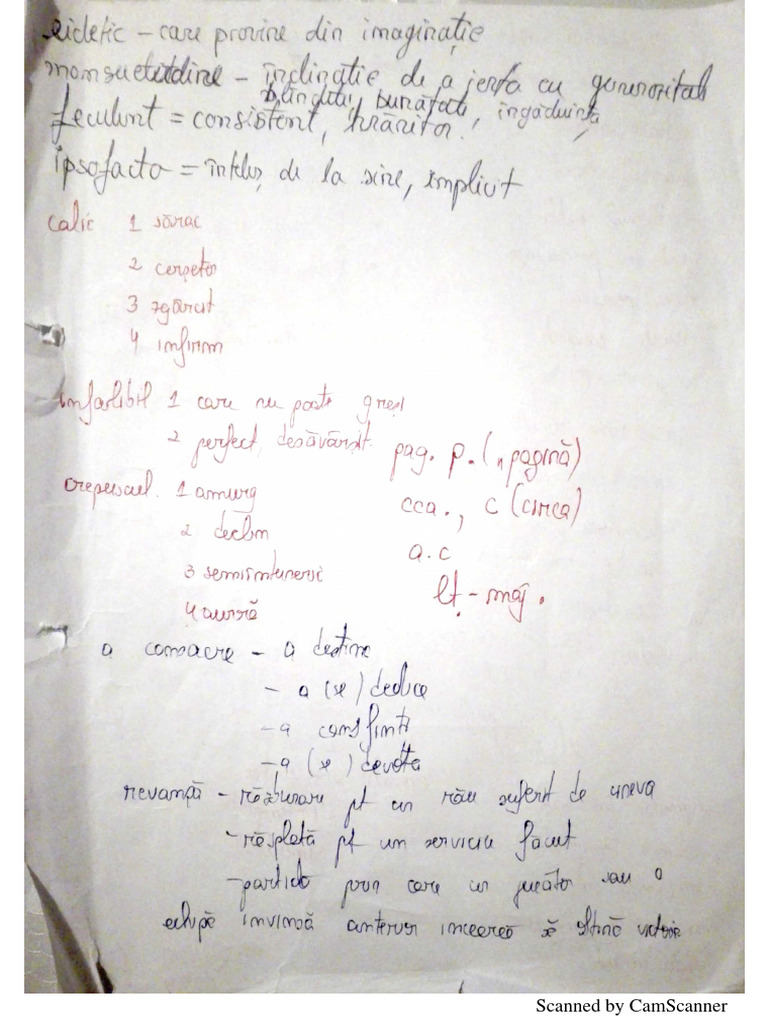 eidetic – care provine din imaginație
mansuetudine – înclinație de a ierta cu generozitate
blândețe, bunătate, îngăduință
feculent = consistent, hrănitor.
ipsofacto = înțeles de la sine, implicit
calic 1 sărac
2 cerșetor
3 zgârcit
4 infirm
infailibil 1 care nu poate greși
2 perfect, desăvârșit.
pag. p. („pagină)
crepuscul. 1 amurg
cca., c (circa)
2 declin
a.c
3 semiîntuneric
lt – maj.
4 auroră
a consacra – a destina
– a (se) dedica
– a consfinți
– a (se) devota
revanșă – răzbunare pt un rău suferit de cineva
– răsplată pt un serviciu făcut
– partidă prin care un jucător sau o
echipă învinsă anterior încearcă să obțină victorie
Scanned by CamScanner